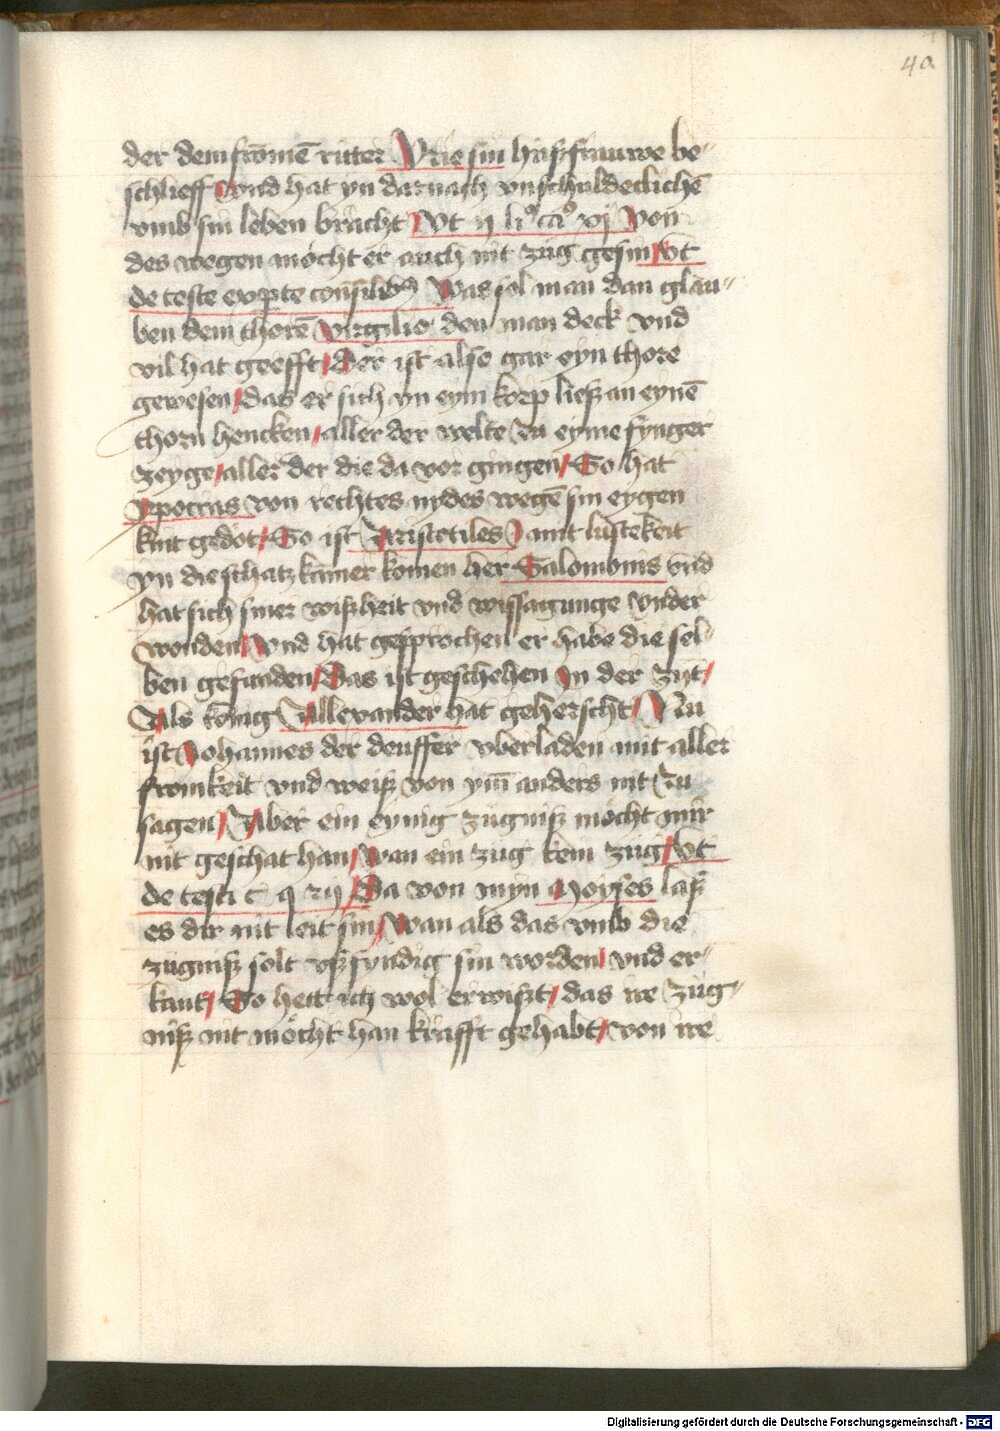 40
der dem fromē ritter Vrie sin hußfrauwe be-
schlieff vnd hat yn darnach vnschuldeclichē
vmb sin leben bracht / Vt ij li° ca° xj Von
des wegen mocht er auch nit züg gesin / Vt
de teste exp̱te consilibꝫ Was sol man dan glau-
ben dem thorē virgilio den man deck vnd
vil hat geefft / Der ist alse gar eyn thore
gewesen / das er sich yn eym korp ließ an eynē
thorn hencken / aller der welte zu eyme fynger
zeyge / aller der die da vor gingen / So hat
ypocras von rechtes nydes wegē sin eygen
kint gedot / So ist Aristotiles mit lustekeit
yn die schatzkamer komen her Salomonis vnd
hat sich siner wißheit vnd wissagunge vnder
wonden / vnd hat gesprochen er habe die sel-
ben gefunden / Das ist geschehen In der zyt /
Als konig Allexander hat geherscht / Nu
ist Johannes der deuffer vberladen mit aller
fromkeit vnd weiß von ym̄ anders nit zu
sagen / Aber ein eynig zügniß mocht mir
nit geschat han / wan ein züg kein züg / Vt
de testi c q xij Da von myn Moyses laß
es dir nit leit sin / Wan als das vmb die
zügniß solt vßfyndig sin worden / vnd er-
kant / So hett ich wol erwißt / das ire züg-
niß nit möcht han krafft gehabt / von ire
Digitalisierung gefördert durch die Deutsche Forschungsgemeinschaft - DFG